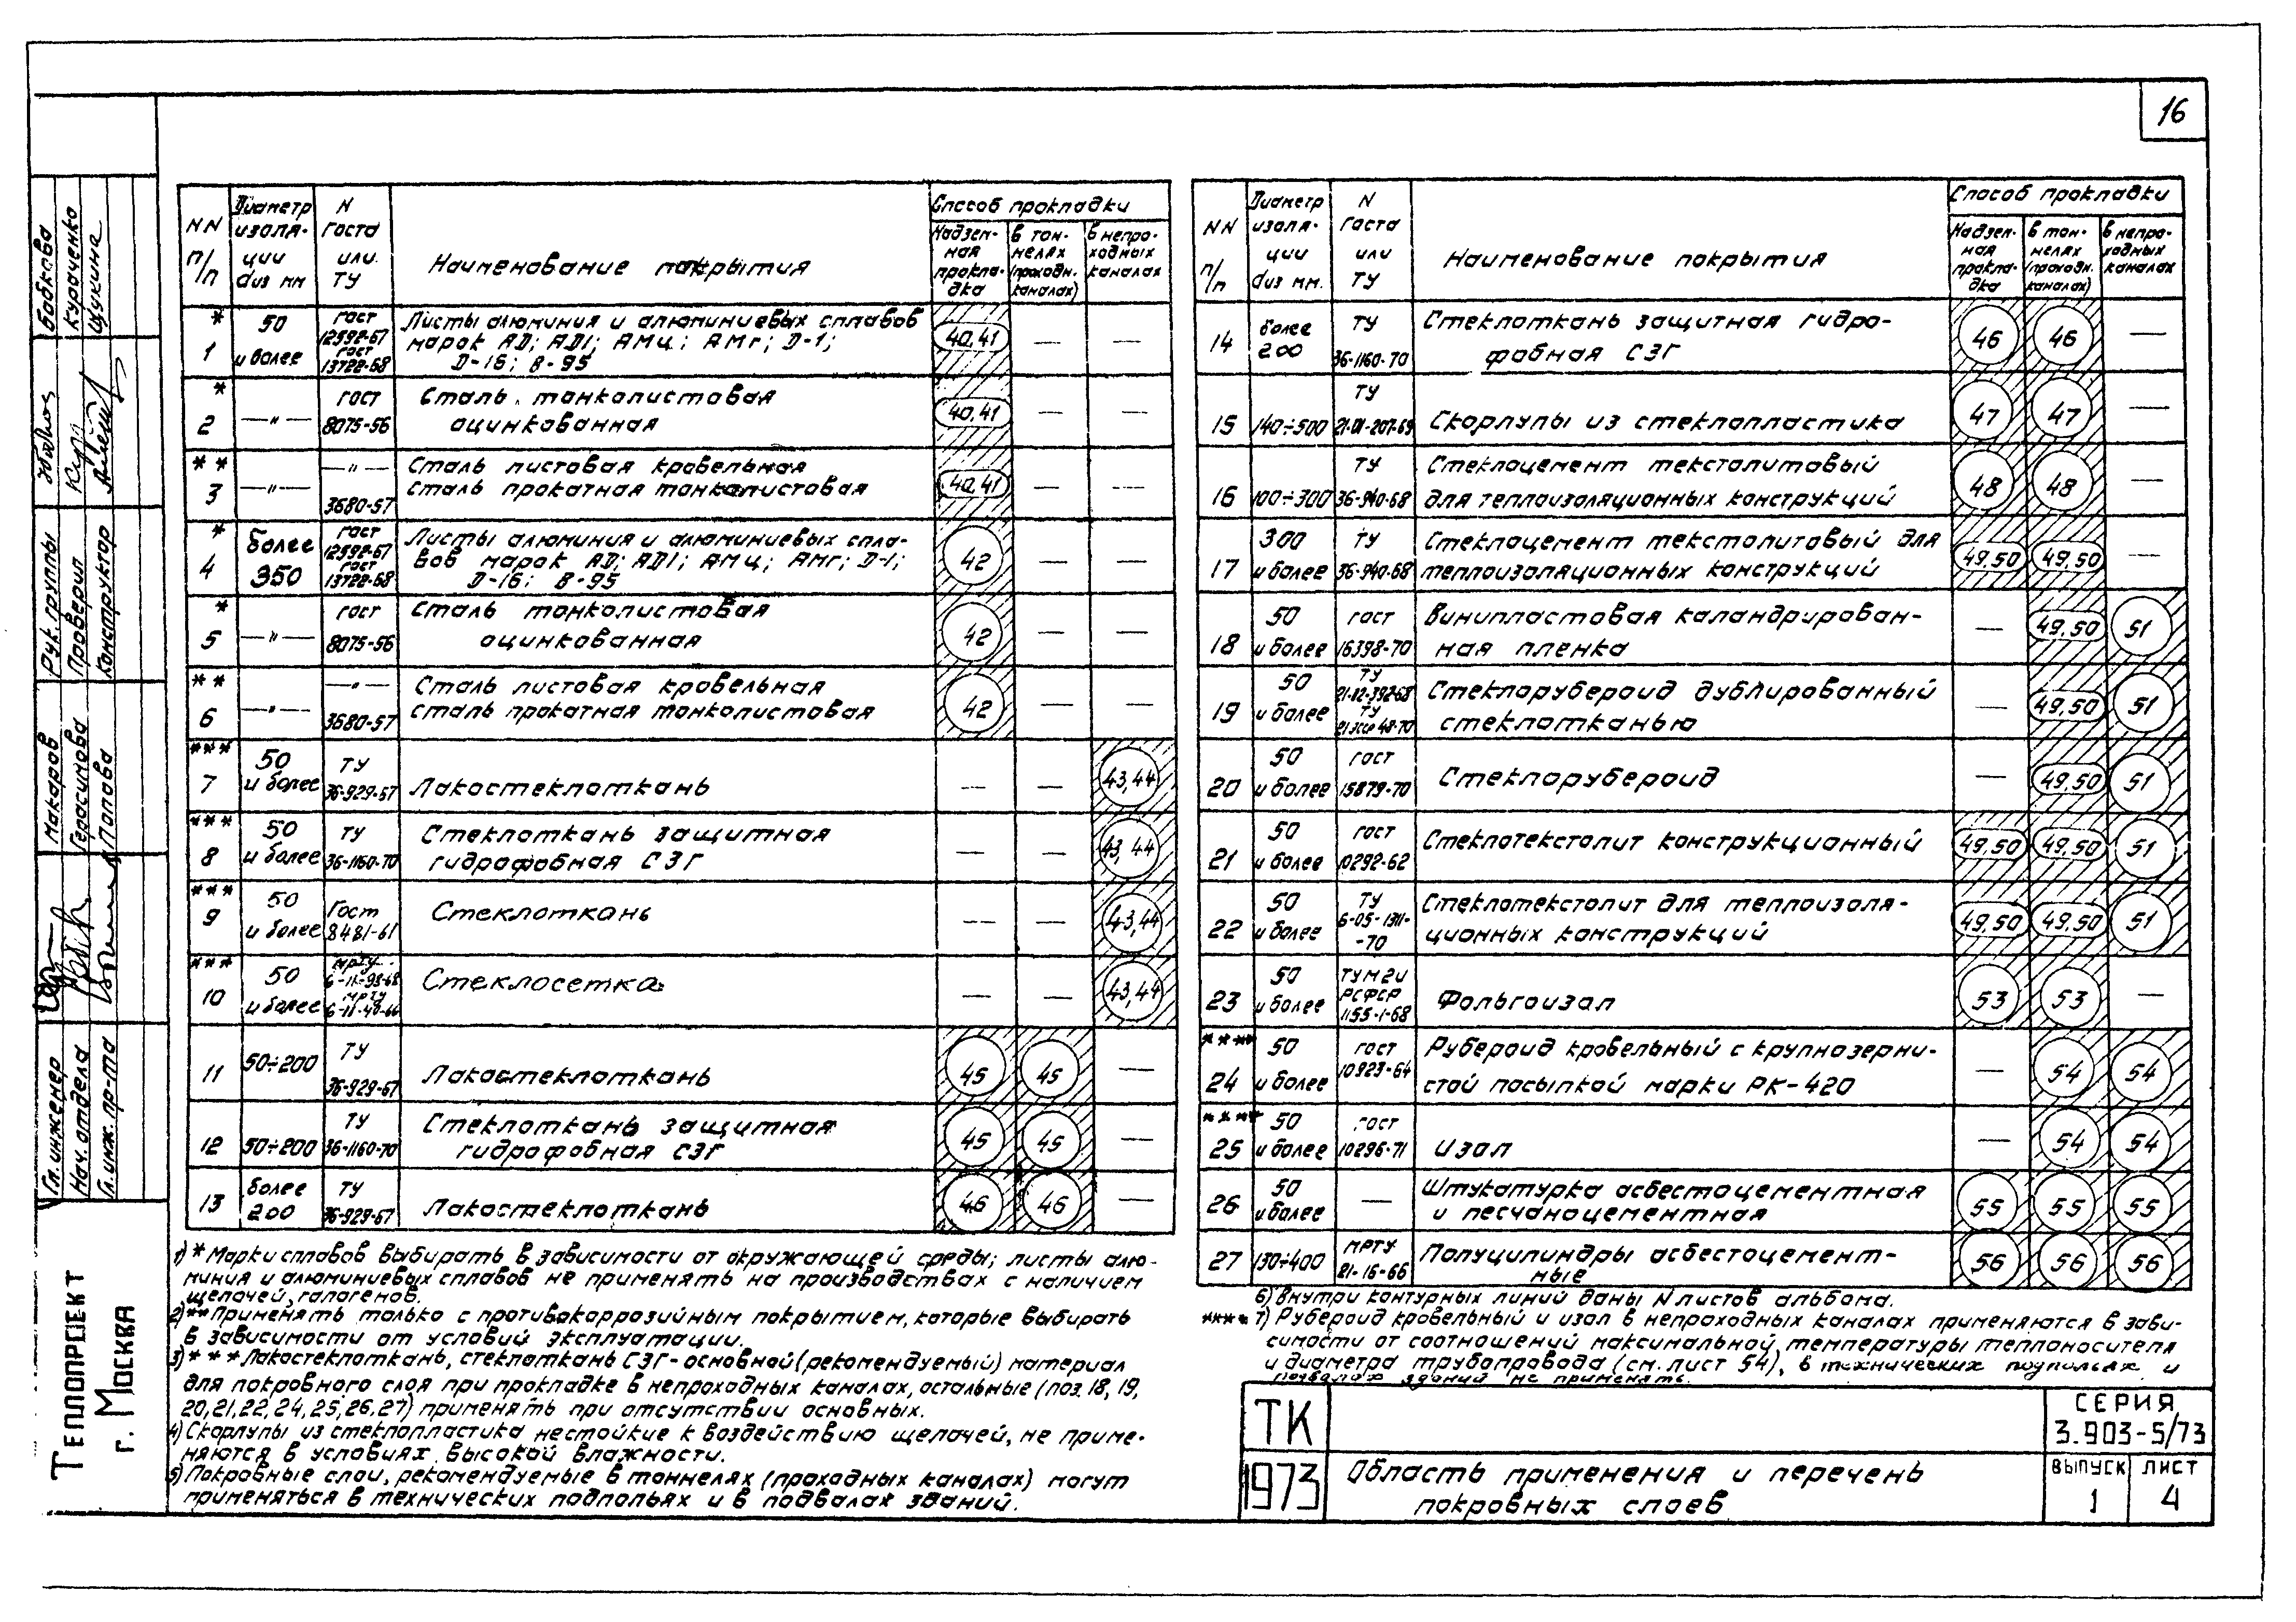 16
NN п/п
Диаметр изоля- ции dиз мм
N Госта или ТУ
Наименование покрытия
Способ прокладки
Надзем- ная прокла- дка
в тон- нелях (проходн. каналах)
в непро- ходных каналах
* 1 50 и более ГОСТ 12592-67 ГОСТ 13722-68 Листы алюминия и алюминиевых сплавов марок АД; АД1; АМц; АМг; Д-1; Д-16; В-95 40,41 — —
* 2 —"— ГОСТ 8075-56 Сталь тонколистовая оцинкованная 40,41 — —
** 3 —"— —"— 3680-57 Сталь листовая кровельная сталь прокатная тонколистовая 40,41 — —
* 4 более 350 ГОСТ 12592-67 ГОСТ 13722-68 Листы алюминия и алюминиевых спла- вов марок АД; АД1; АМц; АМг; Д-1; Д-16; В-95 42 — —
* 5 —"— ГОСТ 8075-56 Сталь тонколистовая оцинкованная 42 — —
** 6 —"— —"— 3680-57 Сталь листовая кровельная сталь прокатная тонколистовая 42 — —
*** 7 50 и более ТУ 36-929-67 Лакостеклоткань — — 43,44
*** 8 50 и более ТУ 36-1160-70 Стеклоткань защитная гидрофобная СЗГ — — 43,44
*** 9 50 и более Гост 8481-61 Стеклоткань — — 43,44
*** 10 50 и более МРТУ 6-11-98-68 МРТУ 6-11-40-66 Стеклосетка — — 43,44
11 50÷200 ТУ 36-929-67 Лакостеклоткань 45 45 —
12 50÷200 ТУ 36-1160-70 Стеклоткань защитная гидрофобная СЗГ 45 45 —
13 более 200 ТУ 36-929-67 Лакостеклоткань 46 46 —
1) * Марки сплавов выбирать в зависимости от окружающей среды; листы алю-
миния и алюминиевых сплавов не применять на производствах с наличием
щелочей, галогенов.
2) ** Применять только с противокоррозийным покрытием, которые выбирать
в зависимости от условий эксплуатации.
3) *** Лакостеклоткань, стеклоткань СЗГ-основной (рекомендуемый) материал
для покровного слоя при прокладке в непроходных каналах, остальные (поз. 18, 19,
20, 21, 22, 24, 25, 26, 27) применять при отсутствии основных.
4) Скорлупы из стеклопластика нестойкие к воздействию щелочей, не приме-
няются в условиях высокой влажности.
5) Покровные слои, рекомендуемые в тоннелях (проходных каналах) могут
применяться в технических подпольях и в подвалах зданий.
NN п/п
Диаметр изоля- ции dиз мм.
N Госта или ТУ
Наименование покрытия
Способ прокладки
Надзем- ная прокла- дка
в тон- нелях (проходн. каналах)
в непро- ходных каналах
14 более 200 ТУ 36-1160-70 Стеклоткань защитная гидро- фобная СЗГ 46 46 —
15 140÷500 ТУ 21-01-207-69 Скорлупы из стеклопластика 47 47 —
16 100÷300 ТУ 36-940-68 Стеклоцемент текстолитовый для теплоизоляционных конструкций 48 48 —
17 300 и более ТУ 36-940-68 Стеклоцемент текстолитовый для теплоизоляционных конструкций 49,50 49,50 —
18 50 и более ГОСТ 16398-70 Винипластовая каландрирован- ная пленка — 49,50 51
19 50 и более ТУ 21-12-392-68 ТУ 21 ЭССР 48-70 Стеклорубероид дублированный стеклотканью — 49,50 51
20 50 и более ГОСТ 15879-70 Стеклорубероид — 49,50 51
21 50 и более ГОСТ 10292-62 Стеклотекстолит конструкционный 49,50 49,50 51
22 50 и более ТУ 6-05-1311- -70 Стеклотекстолит для теплоизоля- ционных конструкций 49,50 49,50 51
23 50 и более ТУ М2И РСФСР 1155-1-68 Фольгоизол 53 53 —
**** 24 50 и более ГОСТ 10923-64 Рубероид кровельный с крупнозерни- стой посыпкой марки РК-420 — 54 54
**** 25 50 и более ГОСТ 10296-71 Изол — 54 54
26 50 и более — Штукатурка асбестоцементная и песчаноцементная 55 55 55
27 130÷400 МРТУ 21-16-66 Полуцилиндры асбестоцемент- ные 56 56 56
6) Внутри контурных линий даны N листов альбома.
**** 7) Рубероид кровельный и изол в непроходных каналах применяются в зави-
симости от соотношений максимальной температуры теплоносителя
и диаметра трубопровода (см. лист 54), в технических подпольях и
подвалах зданий не применять.
ТК
1973
Область применения и перечень
покровных слоев
СЕРИЯ
3.903-5/73
ВЫПУСК ЛИСТ
1 4
Бобкова
Кураченко
Щукина
Рук. группы
Проверил
Конструктор
Макаров
Герасимова
Попова
Гл. инженер
Нач. отдела
Гл. инж. пр-та
ТЕПЛОПРОЕКТ
г. МОСКВА